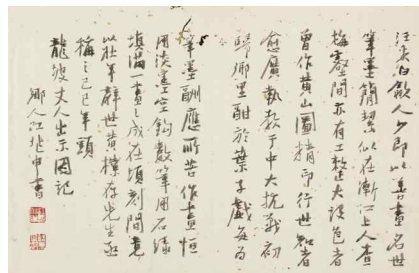 汪采白歙人少即以書畫名世
筆墨簡潔似在漸江上人查
梅壑間亦有工整大設色者
曾作黃山圖精印行世知者
愈廣執教于中大抗戰初
歸鄉里酣於葉子戲每為
筆墨酬應所苦作畫恒
用淡墨空鈎數筆用石綠
填滿一畫之成在頃刻間竟
以壯年辭世黃樸存先生亟
稱之己巳年頭
龍波丈人出示因記
鄉人江兆申書